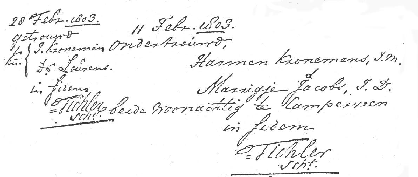 28 Febr. 1803.
getrouwd
J. Kroneman
Ds Laurens.
in fidem
Tichler
Scht.
11 Febr. 1803.
Ondertrouwd,
Harmen Kronemans, J.M.
Marrigje Jacobs, J.D.
beide woonachtig te Camperveen
in fidem
Tichler
Scht.